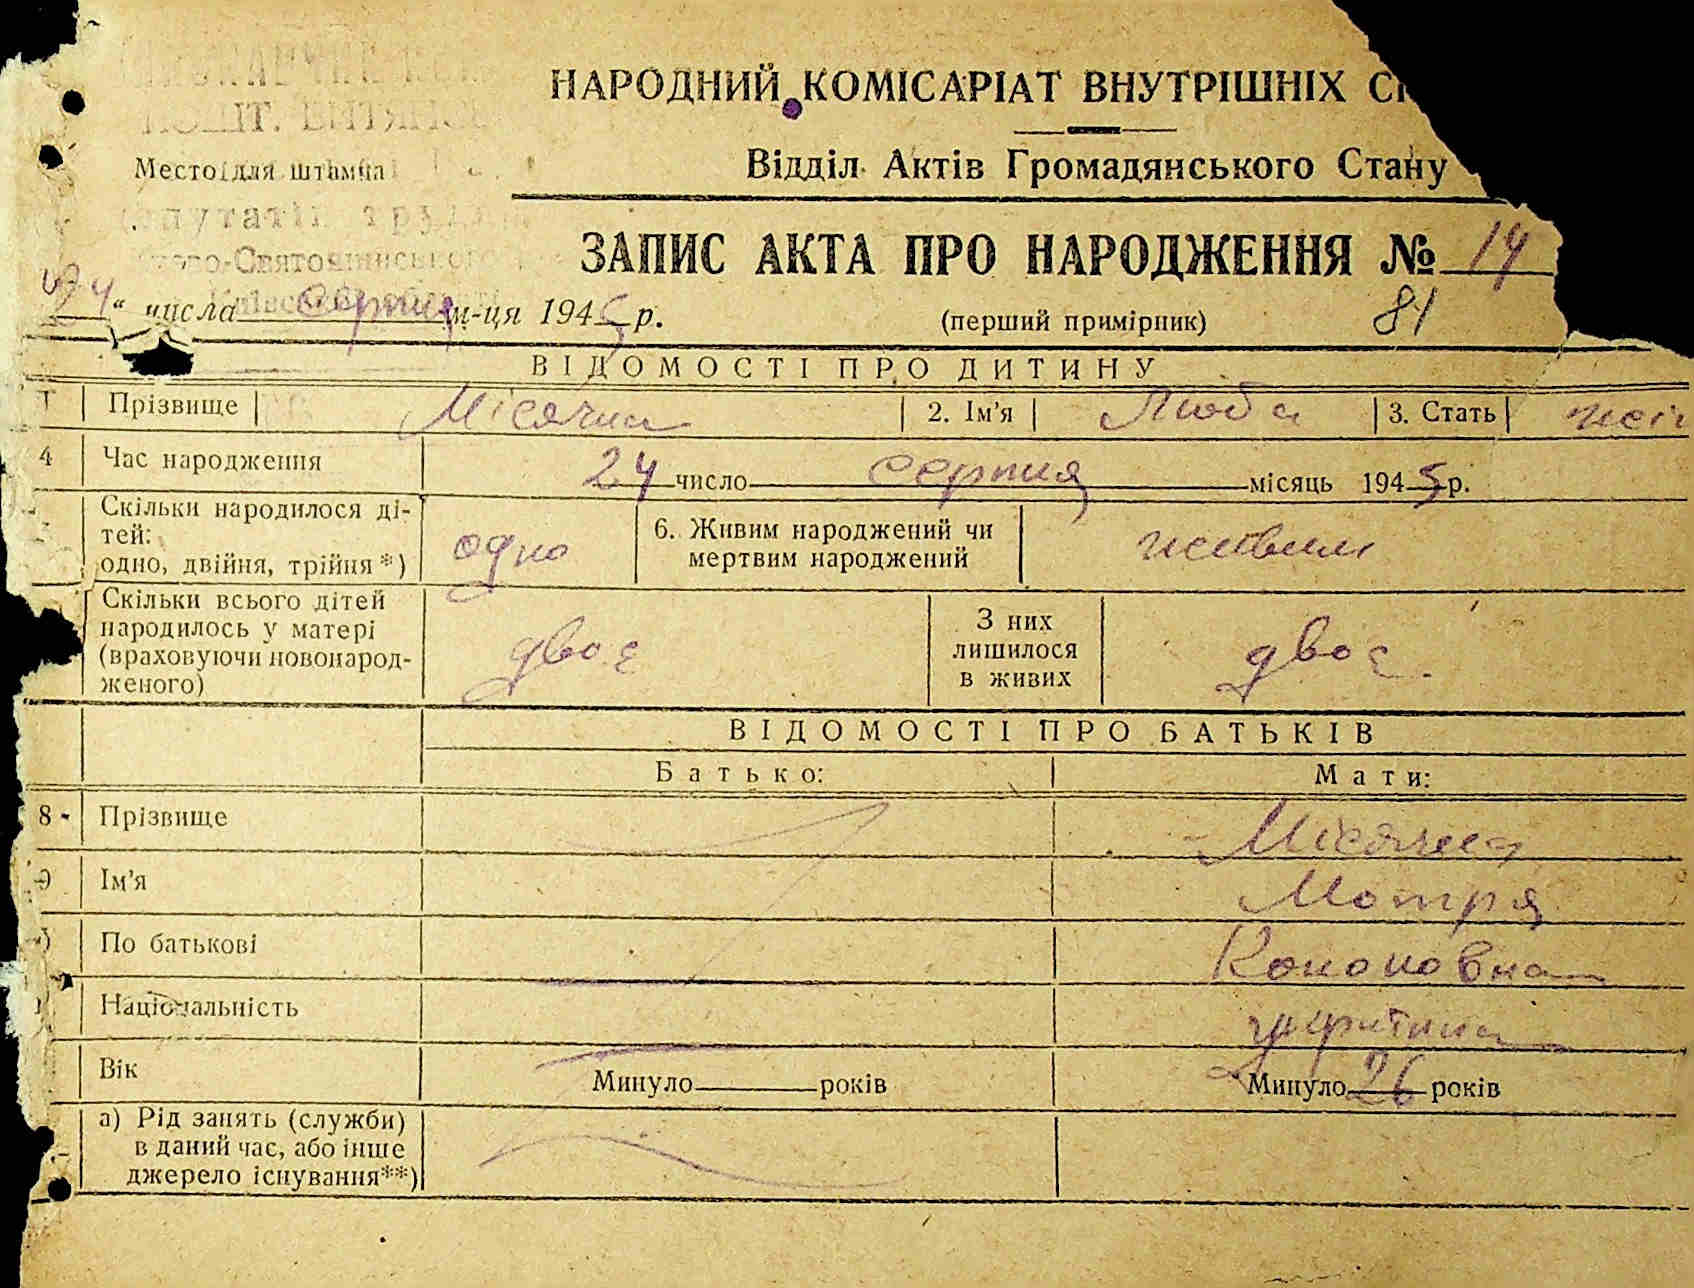 НАРОДНИЙ КОМІСАРІАТ ВНУТРІШНІХ
Відділ Актів Громадянського Стану
Место для штампа
ЗАПИС АКТА ПРО НАРОДЖЕННЯ № 14
24 " числа серпня м-ця 1945 р.
(перший примірник) 81
ВІДОМОСТІ ПРО ДИТИНУ
1 Прізвище Місячна 2. Ім'я Люба 3. Стать
4 Час народження 24 число серпня місяць 1945 р.
Скільки народилося ді-
тей:
одно, двійня, трійня *) одно 6. Живим народжений чи
мертвим народжений живим
Скільки всього дітей
народилось у матері
(враховуючи новонарод-
женого) двоє З них
лишилося
в живих двоє
ВІДОМОСТІ ПРО БАТЬКІВ
Батько: Мати:
8 Прізвище Місячна
9 Ім'я Мотря
По батькові Кононовна
Національність
Вік Минуло років Минуло 26 років
а) Рід занять (служби)
в даний час, або інше
джерело існування**)